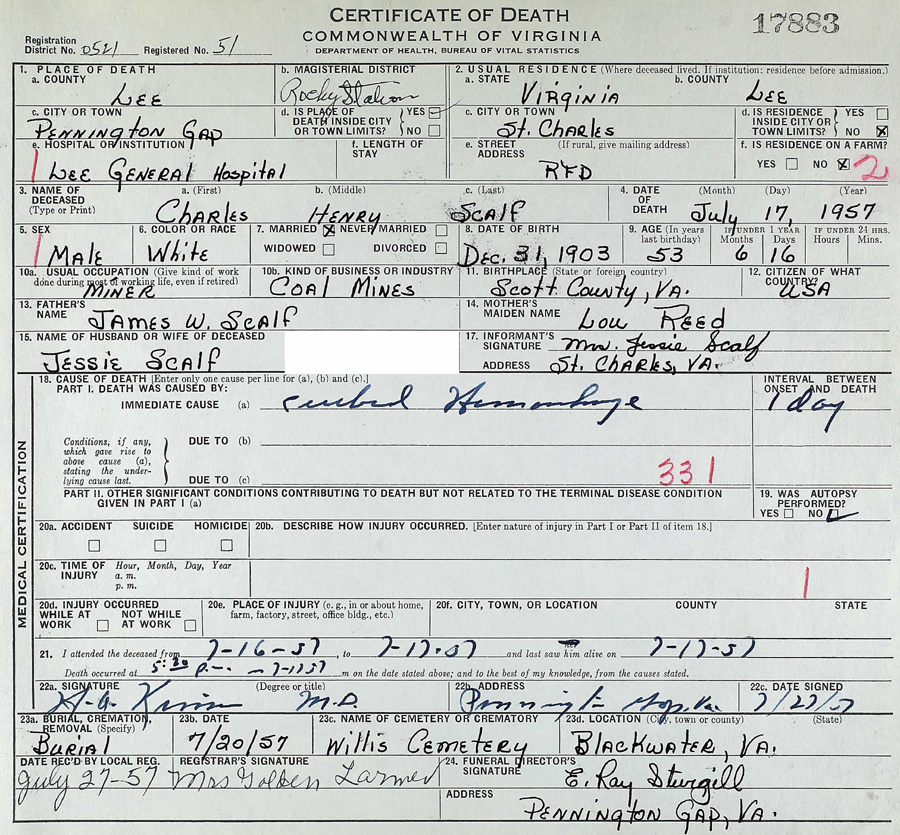 CERTIFICATE OF DEATH
COMMONWEALTH OF VIRGINIA
DEPARTMENT OF HEALTH, BUREAU OF VITAL STATISTICS
17883
Registration District No. 0521 Registered No. 51
1. PLACE OF DEATH
a. COUNTY
LEE
b. MAGISTERIAL DISTRICT
Rocky Station
2. USUAL RESIDENCE (Where deceased lived. If institution: residence before admission.)
a. STATE
VIRGINIA
b. COUNTY
LEE
c. CITY OR TOWN
PENNINGTON GAP
d. IS PLACE OF DEATH INSIDE CITY OR TOWN LIMITS? YES NO
c. CITY OR TOWN
ST. CHARLES
d. IS RESIDENCE INSIDE CITY OR TOWN LIMITS? YES NO X
e. HOSPITAL OR INSTITUTION
LEE GENERAL HOSPITAL
f. LENGTH OF STAY
e. STREET ADDRESS (If rural, give mailing address)
RFD
f. IS RESIDENCE ON A FARM?
YES NO X 2
3. NAME OF DECEASED (Type or Print)
a. (First) b. (Middle) c. (Last)
CHARLES HENRY SCALF
4. DATE OF DEATH (Month) (Day) (Year)
July 17, 1957
5. SEX
MALE
6. COLOR OR RACE
WHITE
7. MARRIED X NEVER MARRIED
WIDOWED DIVORCED
8. DATE OF BIRTH
DEC. 31, 1903
9. AGE (In years last birthday)
53
IF UNDER 1 YEAR
Months Days
6 16
IF UNDER 24 HRS.
Hours Mins.
10a. USUAL OCCUPATION (Give kind of work done during most of working life, even if retired)
MINER
10b. KIND OF BUSINESS OR INDUSTRY
COAL MINES
11. BIRTHPLACE (State or foreign country)
SCOTT COUNTY, VA.
12. CITIZEN OF WHAT COUNTRY?
USA
13. FATHER'S NAME
JAMES W. SCALF
14. MOTHER'S MAIDEN NAME
LOU REED
15. NAME OF HUSBAND OR WIFE OF DECEASED
JESSIE SCALF
17. INFORMANT'S SIGNATURE Mrs. Jessie Scalf
ADDRESS ST. CHARLES, VA.
MEDICAL CERTIFICATION
18. CAUSE OF DEATH [Enter only one cause per line for (a), (b) and (c).]
PART I. DEATH WAS CAUSED BY:
IMMEDIATE CAUSE (a) Cerebral Hemorrhage
INTERVAL BETWEEN ONSET AND DEATH
1 day
Conditions, if any, which gave rise to above cause (a), stating the underlying cause last.
DUE TO (b)
DUE TO (c)
331
PART II. OTHER SIGNIFICANT CONDITIONS CONTRIBUTING TO DEATH BUT NOT RELATED TO THE TERMINAL DISEASE CONDITION GIVEN IN PART I (a)
19. WAS AUTOPSY PERFORMED?
YES NO
20a. ACCIDENT SUICIDE HOMICIDE
20b. DESCRIBE HOW INJURY OCCURRED. [Enter nature of injury in Part I or Part II of item 18.]
20c. TIME OF INJURY Hour, Month, Day, Year
a. m.
p. m.
20d. INJURY OCCURRED
WHILE AT WORK NOT WHILE AT WORK
20e. PLACE OF INJURY (e. g., in or about home, farm, factory, street, office bldg., etc.)
20f. CITY, TOWN, OR LOCATION COUNTY STATE
21. I attended the deceased from 7-16-57, to 7-17-57 and last saw him alive on 7-17-57
Death occurred at 5:30 p.m. 7-17-57 m on the date stated above; and to the best of my knowledge, from the causes stated.
22a. SIGNATURE (Degree or title)
M.D.
22b. ADDRESS
22c. DATE SIGNED
7/27/57
23a. BURIAL, CREMATION, REMOVAL (Specify)
BURIAL
23b. DATE
7/20/57
23c. NAME OF CEMETERY OR CREMATORY
WILLIS CEMETERY
23d. LOCATION (City, town or county) (State)
BLACKWATER, VA.
DATE REC'D BY LOCAL REG.
July 27-57
REGISTRAR'S SIGNATURE
Mrs Golden
24. FUNERAL DIRECTOR'S SIGNATURE
E. Ray Sturgill
ADDRESS
PENNINGTON GAP, VA.